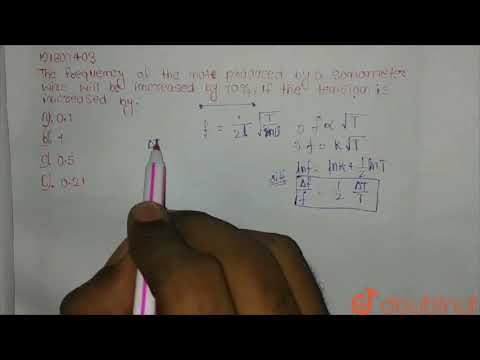 The frequency of the note produced by a sonometer
wire will be increased by 10%, if the tension is
increased by:
A) 0.1
B) 1
C) 0.5
D) 0.21
f = 1/2l √T/√m
∴ f ∝ √T
∴ f = K√T
lnf = lnK + 1/2 lnT
Δf/f = 1/2 ΔT/T
ΔT
doubtnut